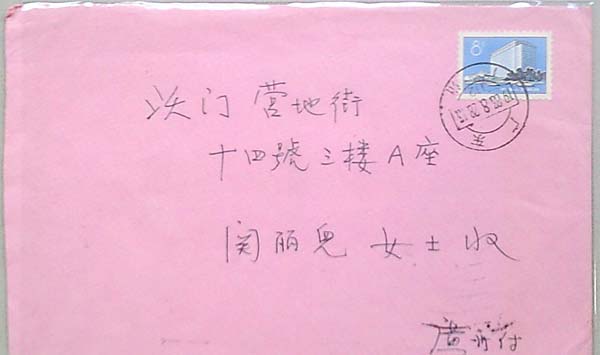 8分
沃门 营地街
十四號三楼A座
関丽兒 女士收
付
广东